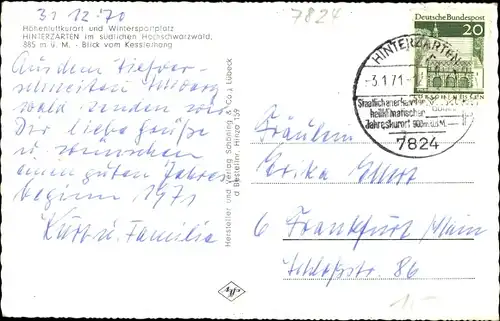 31.12.70
7824
Höhenluftkurort und Wintersportplatz
HINTERZARTEN im südlichen Hochschwarzwald,
885 m ü. M. - Blick vom Kesslerhang
Aus dem tiefver-
schneiten Schwarz
wald senden wir
Dir liebe Grüße
u. wünschen
einen guten Jahres
beginn 1971
Kurt u. Familie
Hersteller und Verlag Schöning & Co., Lübeck
Bestellnr. Hinzar
Deutsche Bundespost
20
HINTERZARTEN
-3.1.71-
Staatlich anerkannter
heilklimatischer
Jahreskurort
7824
Fräulein
Erika Elfert
6 Frankfurt/Main
Schloßstr. 86
1,-